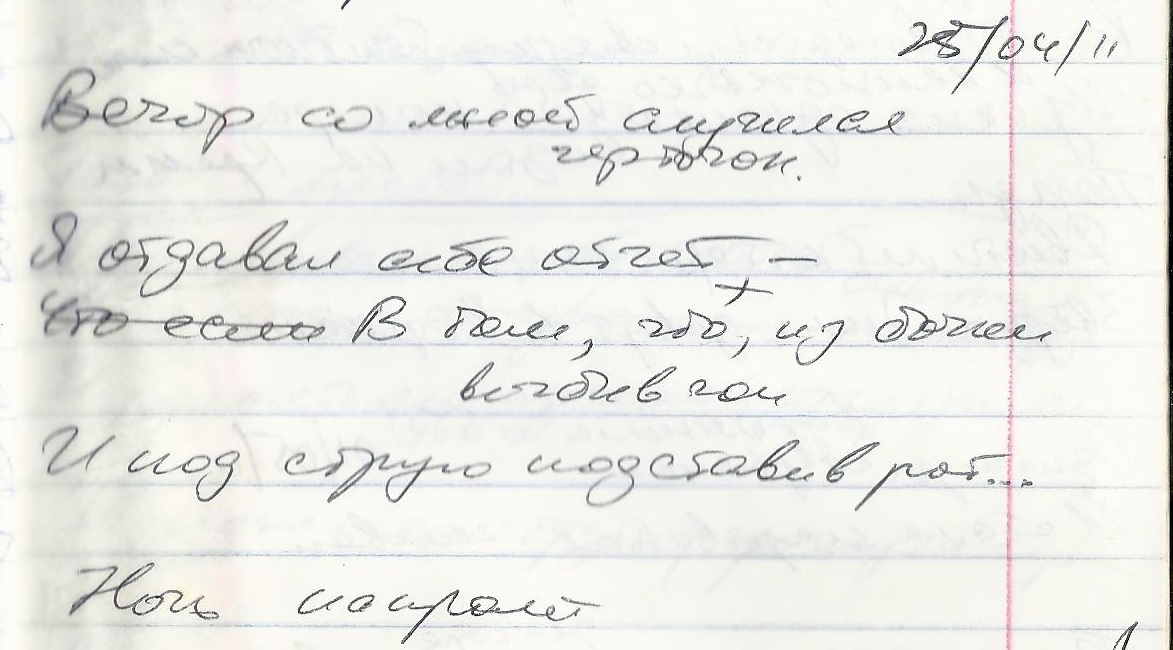 25/04/11
Вечор со мной случился
чертогон.
Я отдавал себе отчет, –
Что если В том, что, из бочки
выбив гон
И под струю подставив рот...
Ночь напролёт